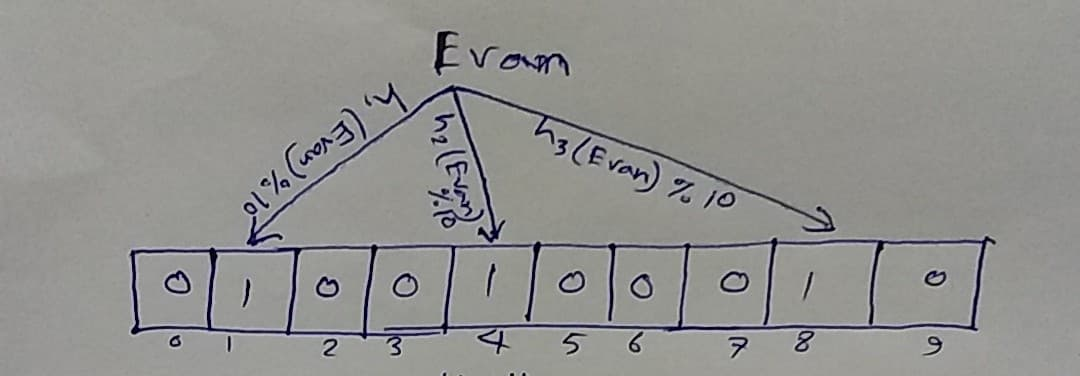 Evan
h1(Evan)%10
h2(Evan)
%10
h3(Evan) % 10
0 1 0 0 1 0 0 0 1 0
0 1 2 3 4 5 6 7 8 9